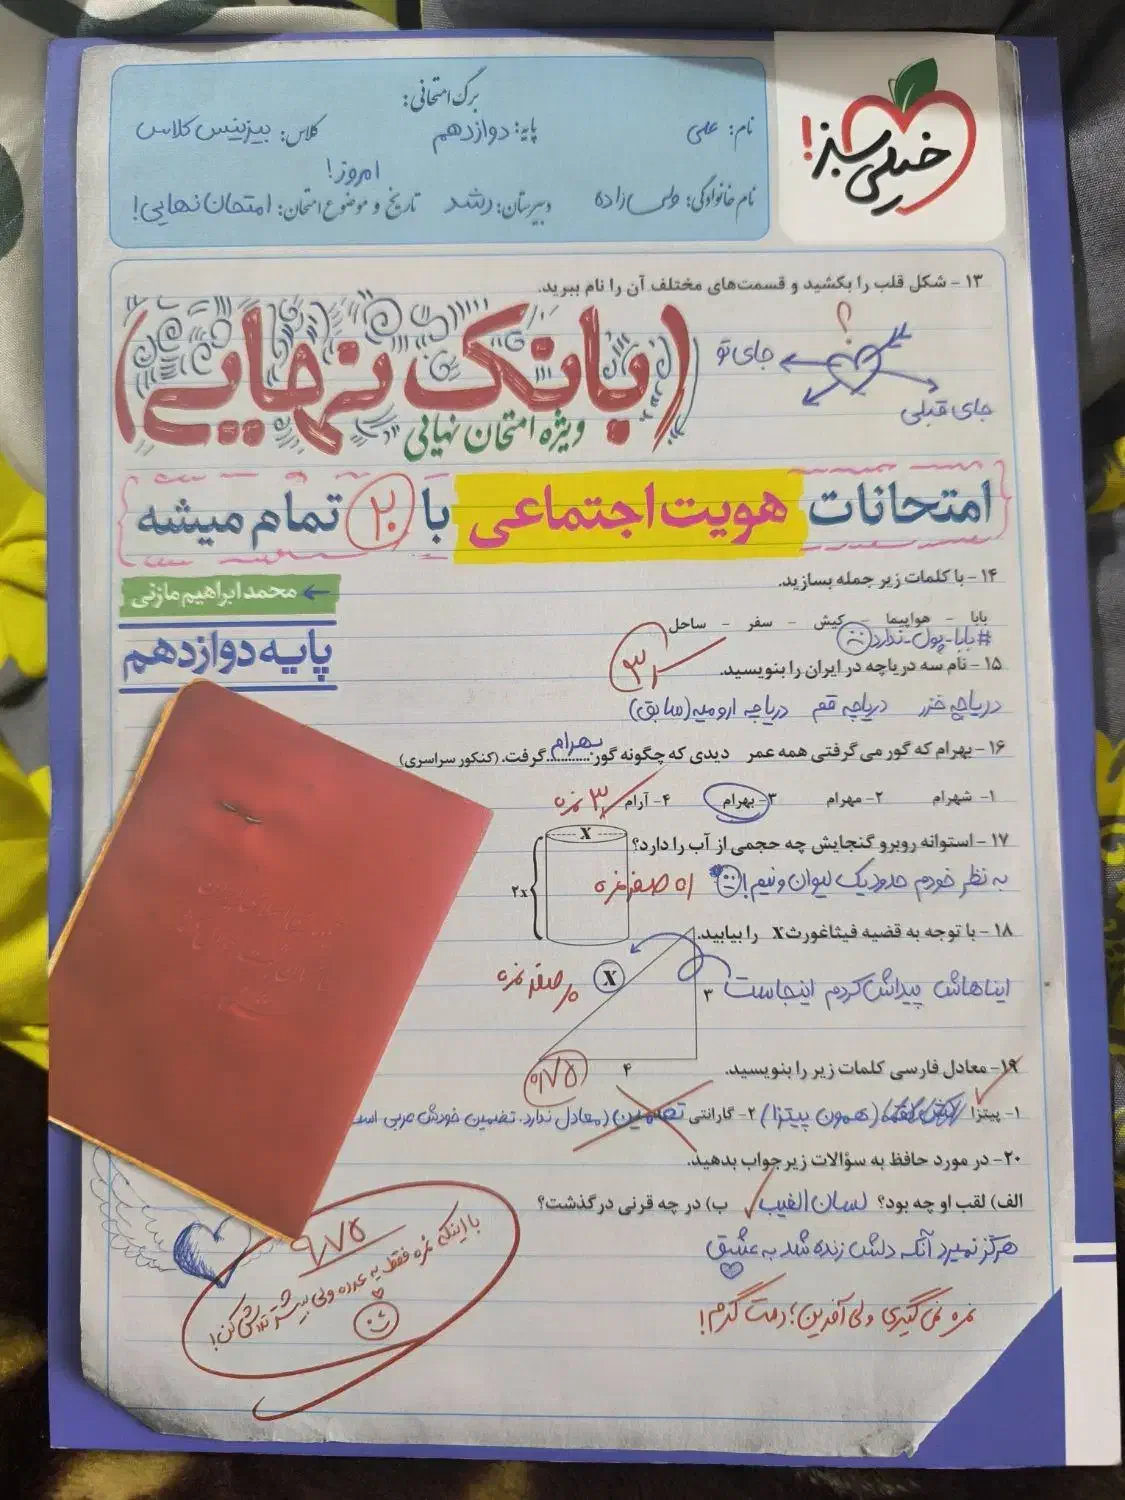 خیلی سبز!
برگ امتحانی:
نام: علی
پایه: دوازدهم
کلاس: بیزینس کلاس
امروز!
نام خانوادگی: ولی‌زاده
دبیرستان: رشد
تاریخ و موضوع امتحان: امتحان نهایی!
۱۳ - شکل قلب را بکشید و قسمت‌های مختلف آن را نام ببرید.
جای تو
جای قبلی
؟
(بانک نهایی)
ویژه امتحان نهایی
امتحانات هویت اجتماعی با ۲۰ تمام میشه
۱۴ - با کلمات زیر جمله بسازید.
← محمدابراهیم مازنی
بابا - هواپیما - کیش - سفر - ساحل
#بابا_پول_ندارد
پایه دوازدهم
۱۵ - نام سه دریاچه در ایران را بنویسید.
دریاچه خزر دریاچه قم دریاچه ارومیه (سابق)
۱۶ - بهرام که گور می گرفتی همه عمر دیدی که چگونه گور بهرام گرفت. (کنکور سراسری)
۱- شهرام ۲- مهرام ۳- بهرام ۴- آرام
۳ نمره
۱۷ - استوانه روبرو گنجایش چه حجمی از آب را دارد؟
X
۲x
به نظر خودم حدود یک لیوان و نیم!
اه صفر نمره
۱۸ - با توجه به قضیه فیثاغورث X را بیابید.
ایناهاش پیداش کردم اینجاست
X
۳
۴
صفر نمره
۱۹- معادل فارسی کلمات زیر را بنویسید.
۰/۷۵
۱- پیتزا (همون پیتزا) ۲- گارانتی تضمین (معادل ندارد. تضمین خودش عربی است
۲۰- در مورد حافظ به سؤالات زیر جواب بدهید.
الف) لقب او چه بود؟ لسان الغیب ب) در چه قرنی درگذشت؟
هرگز نمیرد آنکه دلش زنده شد به عشق
نمره نمی‌گیری ولی آفرین؛ دمت گرم!
۹/۷۵
با اینکه نمره فقط یه عدده ولی بیشتر تلاش کن!